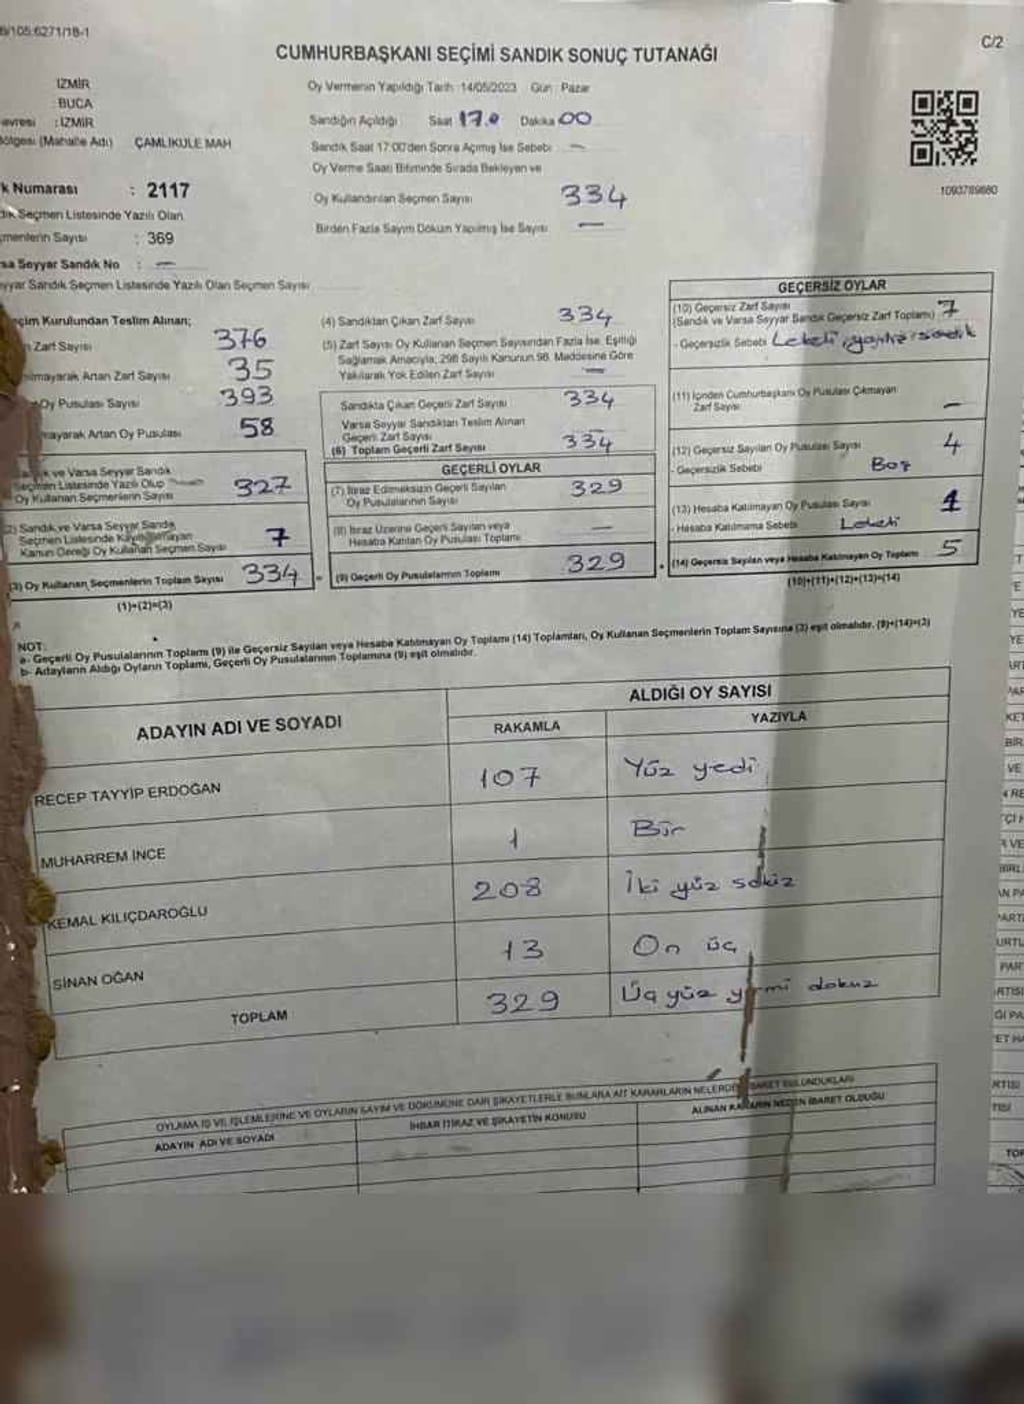 6/105:6271/18-1
C/2
CUMHURBAŞKANI SEÇİMİ SANDIK SONUÇ TUTANAĞI
İZMİR
BUCA
: İZMİR
(Mahalle Adı) ÇAMLIKULE MAH
k Numarası : 2117
Seçmen Listesinde Yazılı Olan
menlerin Sayısı : 369
sa Seyyar Sandık No : —
yyar Sandık Seçmen Listesinde Yazılı Olan Seçmen Sayısı
Oy Vermenin Yapıldığı Tarih : 14/05/2023 Gün : Pazar
Sandığın Açıldığı Saat 17.0 Dakika 00
Sandık Saat 17:00'den Sonra Açmış İse Sebebi : —
Oy Verme Saati Bitiminde Sırada Bekleyen ve
Oy Kullandırılan Seçmen Sayısı 334
Birden Fazla Sayım Döküm Yapılmış İse Sayısı —
1093789880
çim Kurulundan Teslim Alınan;
Zarf Sayısı 376
ılmayarak Artan Zarf Sayısı 35
Oy Pusulası Sayısı 393
mayarak Artan Oy Pusulası 58
ve Varsa Seyyar Sandık
Seçmen Listesinde Yazılı Olup
Oy Kullanan Seçmenlerin Sayısı 327
2) Sandık ve Varsa Seyyar Sandık
Seçmen Listesinde Kayıtlı Olmayan
Kanun Gereği Oy Kullanan Seçmen Sayısı 7
3) Oy Kullanan Seçmenlerin Toplam Sayısı 334
(1)+(2)=(3)
(4) Sandıktan Çıkan Zarf Sayısı 334
(5) Zarf Sayısı Oy Kullanan Seçmen Sayısından Fazla İse, Eşitliği
Sağlamak Amacıyla, 298 Sayılı Kanunun 98. Maddesine Göre
Yakılarak Yok Edilen Zarf Sayısı —
Sandıkta Çıkan Geçerli Zarf Sayısı 334
Varsa Seyyar Sandıktan Teslim Alınan
Geçerli Zarf Sayısı
(6) Toplam Geçerli Zarf Sayısı 334
GEÇERLİ OYLAR
(7) İtiraz Edilmeksizin Geçerli Sayılan
Oy Pusulalarının Sayısı 329
(8) İtiraz Üzerine Geçerli Sayılan veya
Hesaba Katılan Oy Pusulası Toplamı —
(9) Geçerli Oy Pusulalarının Toplamı 329
GEÇERSİZ OYLAR
(10) Geçersiz Zarf Sayısı
(Sandık ve Varsa Seyyar Sandık Geçersiz Zarf Toplamı) 7
- Geçersizlik Sebebi Lekeli,
(11) İçinden Cumhurbaşkanı Oy Pusulası Çıkmayan
Zarf Sayısı —
(12) Geçersiz Sayılan Oy Pusulası Sayısı 4
- Geçersizlik Sebebi Boş
(13) Hesaba Katılmayan Oy Pusulası Sayısı 1
- Hesaba Katılmama Sebebi Lekeli
(14) Geçersiz Sayılan veya Hesaba Katılmayan Oy Toplamı 5
(10)+(11)+(12)+(13)=(14)
NOT:
a- Geçerli Oy Pusulalarının Toplamı (9) ile Geçersiz Sayılan veya Hesaba Katılmayan Oy Toplamı (14) Toplamları, Oy Kullanan Seçmenlerin Toplam Sayısına (3) eşit olmalıdır. (9)+(14)=(3)
b- Adayların Aldığı Oyların Toplamı, Geçerli Oy Pusulalarının Toplamına (9) eşit olmalıdır.
ADAYIN ADI VE SOYADI
ALDIĞI OY SAYISI
RAKAMLA YAZIYLA
RECEP TAYYİP ERDOĞAN 107 Yüz yedi
MUHARREM İNCE 1 Bir
KEMAL KILIÇDAROĞLU 208 İki yüz sekiz
SİNAN OĞAN 13 On üç
TOPLAM 329 Üç yüz yirmi dokuz
OYLAMA İŞ VE İŞLEMLERİNE VE OYLARIN SAYIM VE DÖKÜMÜNE DAİR ŞİKAYETLERLE BUNLARA AİT KARARLARIN NELERDEN İBARET BULUNDUKLARI
ADAYIN ADI VE SOYADI
İHBAR İTİRAZ VE ŞİKAYETİN KONUSU
ALINAN KARARIN NEDEN İBARET OLDUĞU